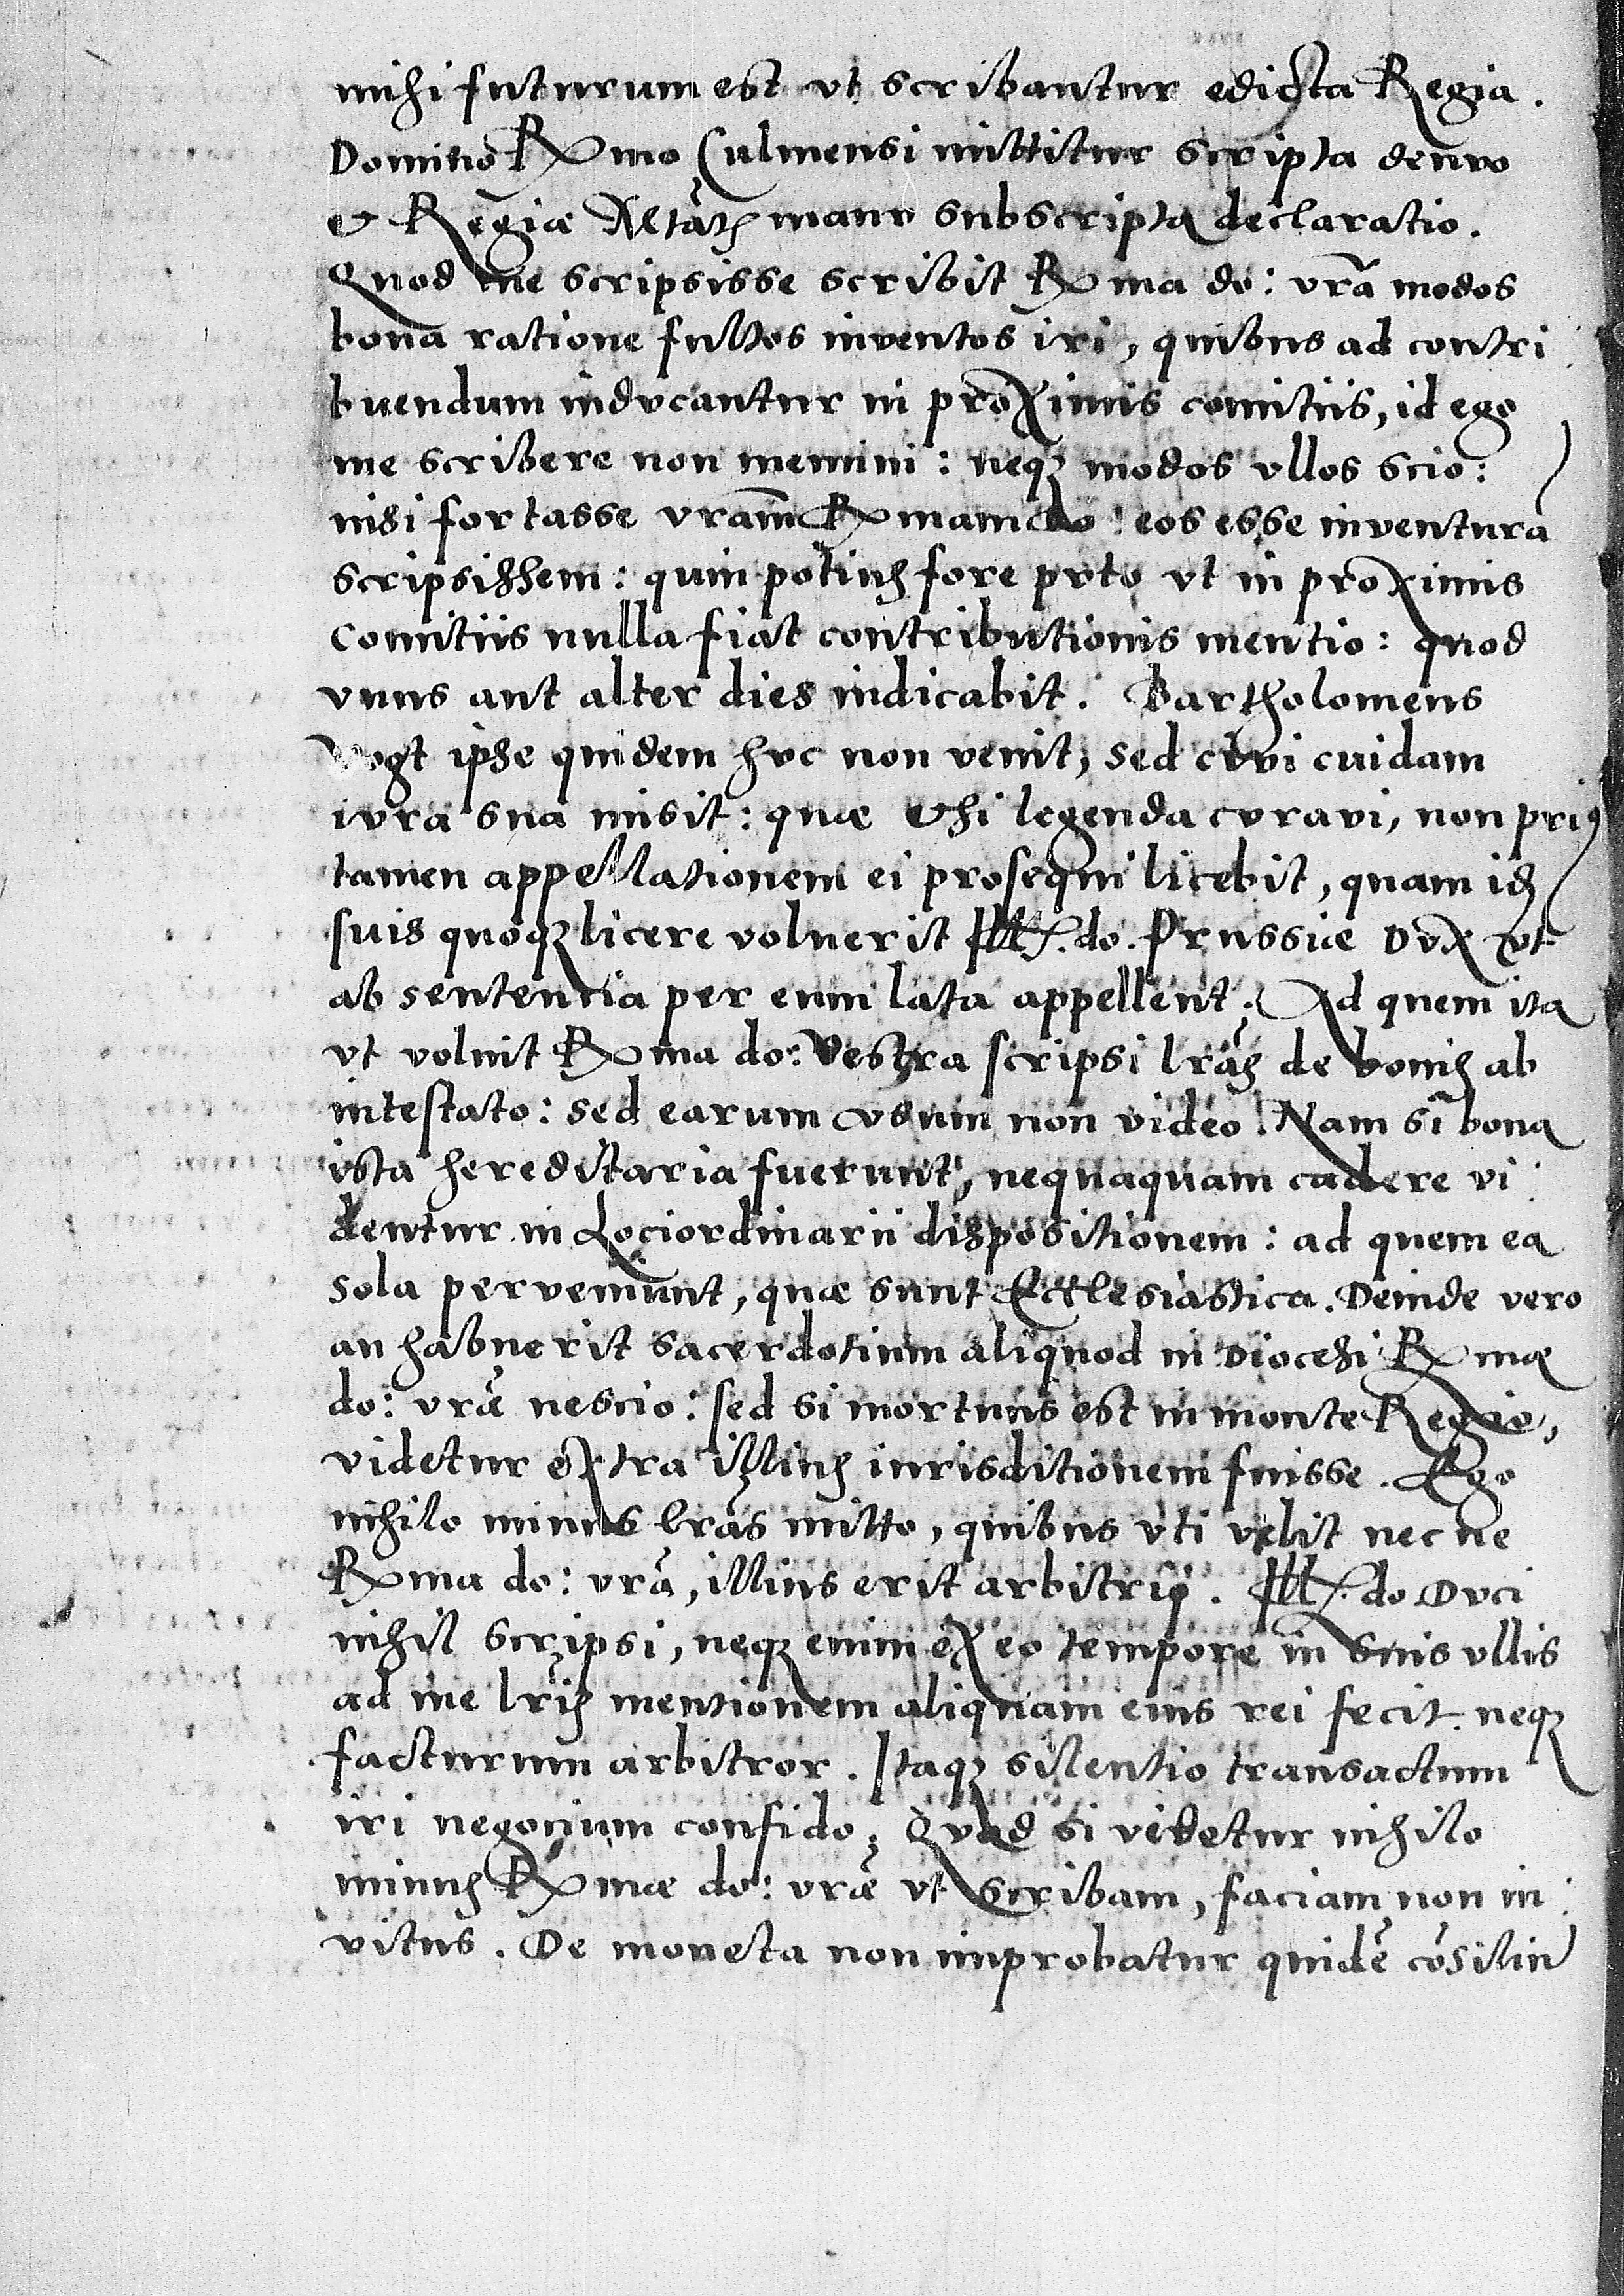 mihi futurum est vt scribantur edicta Regia.
Domino Rmo Culmensi mittitur scripta denuo
et Regiæ Mtãtis manu subscripta declaratio.
Quod me scripsisse scribit Rma do: vrã modos
bona ratione fultos inventos iri, quibus ad contri
buendum inducantur in proximis comitiis, id ego
me scribere non memini: neqz modos vllos scio:
nisi fortasse vram̃ Rmam do: eos esse inventurã
scripsissem: quin potius fore puto vt in proximis
comitiis nulla fiat contributionis mentio: quod
vnus aut alter dies indicabit. Bartholomeus
Vogt ipse quidem huc non venit, sed civi cuidam
iura sua misit: quæ etsi legenda curavi, non prius
tamen appellationem ei prosequi licebit, quam id
suis quoqz licere voluerit Ill. do. Prussiæ Dux vt
ab sentencia per eum lata appellent. Ad quem ita
vt voluit Rma do: Vestra scripsi lrãs de bonis ab
intestato: sed earum vsum non video. Nam si bona
ista hereditaria fuerunt, nequaquam cadere vi
dentur in Loci ordinarii dispositionem: ad quem ea
sola perveniunt, quæ sunt Ecclesiastica. Deinde vero
an habuerit sacerdotium aliquod in Diocesi Rmæ
do: vræ̃ nescio: sed si mortuus est in monte Regio,
videtur extra illius iurisditionem fuisse. Ego
nihilo minus lrãs mitto, quibus vti velit nec ne
Rma do: vrã, illius erit arbitrii. Ill. do Duci
nihil scripsi, neqz enim ex eo tempore in suis vllis
ad me lrĩs mentionem aliquam eius rei fecit. neqz
facturum arbitror. Itaqz silentio transactum
iri negocium confido; Quod si videtur nihilo
minus Rmæ do: vræ̃ vt scribam, faciam non in
vitus. De moneta non improbatur quidẽ cõsiliũ